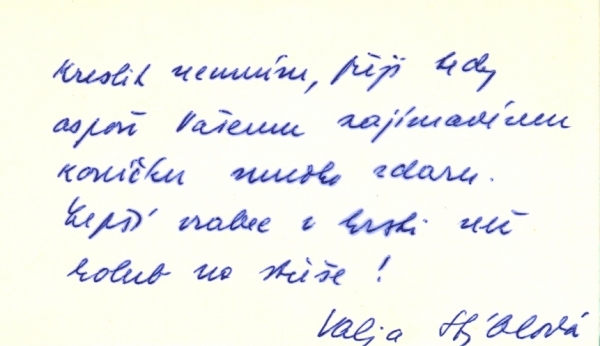 Kreslit neumím, přeji tedy
aspoň Vašemu zajímavému
koníčku mnoho zdaru.
Lepší vrabec v hrsti než
holub na střeše!
Valja Stýblová